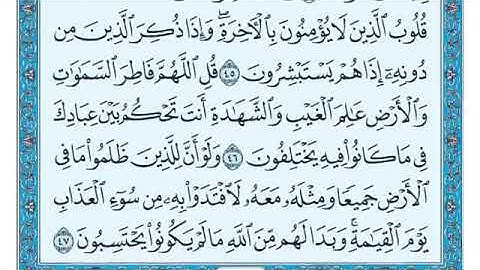 قُلُوبُ ٱلَّذِينَ لَا يُؤْمِنُونَ بِٱلْـَٔاخِرَةِ ۖ وَإِذَا ذُكِرَ ٱلَّذِينَ مِن
دُونِهِۦٓ إِذَا هُمْ يَسْتَبْشِرُونَ ٤٥ قُلِ ٱللَّهُمَّ فَاطِرَ ٱلسَّمَٰوَٰتِ
وَٱلْأَرْضِ عَٰلِمَ ٱلْغَيْبِ وَٱلشَّهَٰدَةِ أَنتَ تَحْكُمُ بَيْنَ عِبَادِكَ
فِى مَا كَانُوا۟ فِيهِ يَخْتَلِفُونَ ٤٦ وَلَوْ أَنَّ لِلَّذِينَ ظَلَمُوا۟ مَا فِى
ٱلْأَرْضِ جَمِيعًا وَمِثْلَهُۥ مَعَهُۥ لَٱفْتَدَوْا۟ بِهِۦ مِن سُوٓءِ ٱلْعَذَابِ
يَوْمَ ٱلْقِيَٰمَةِ ۚ وَبَدَا لَهُم مِّنَ ٱللَّهِ مَا لَمْ يَكُونُوا۟ يَحْتَسِبُونَ ٤٧